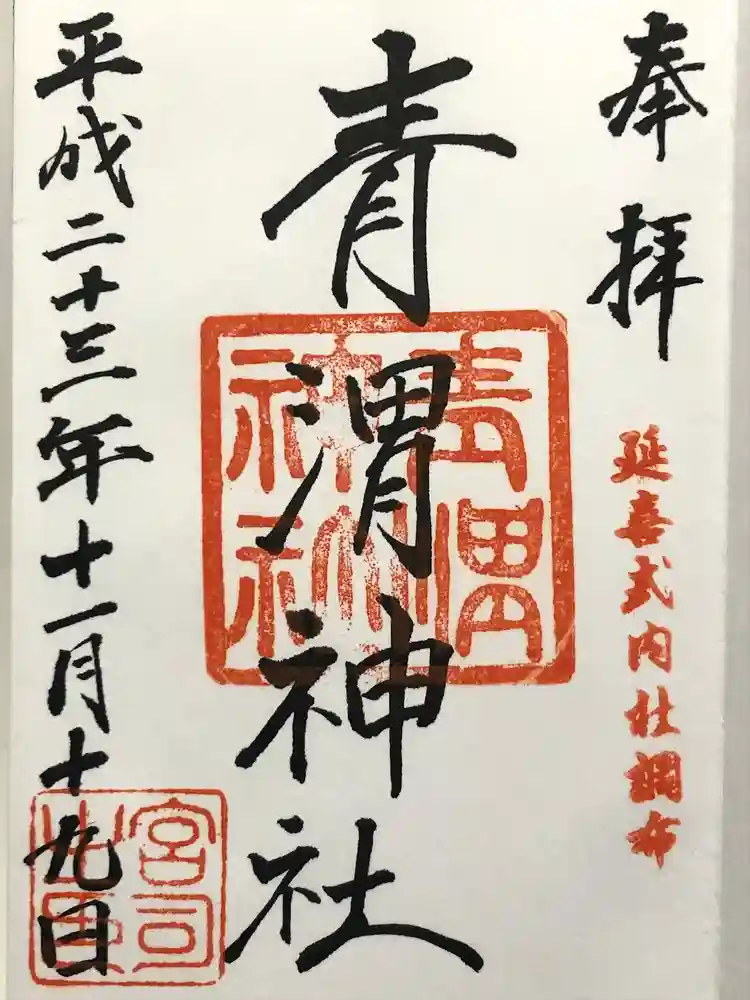 奉拝
延喜式内社調布
青渭神社
青渭神社印
平成二十三年十一月十九日
宮司